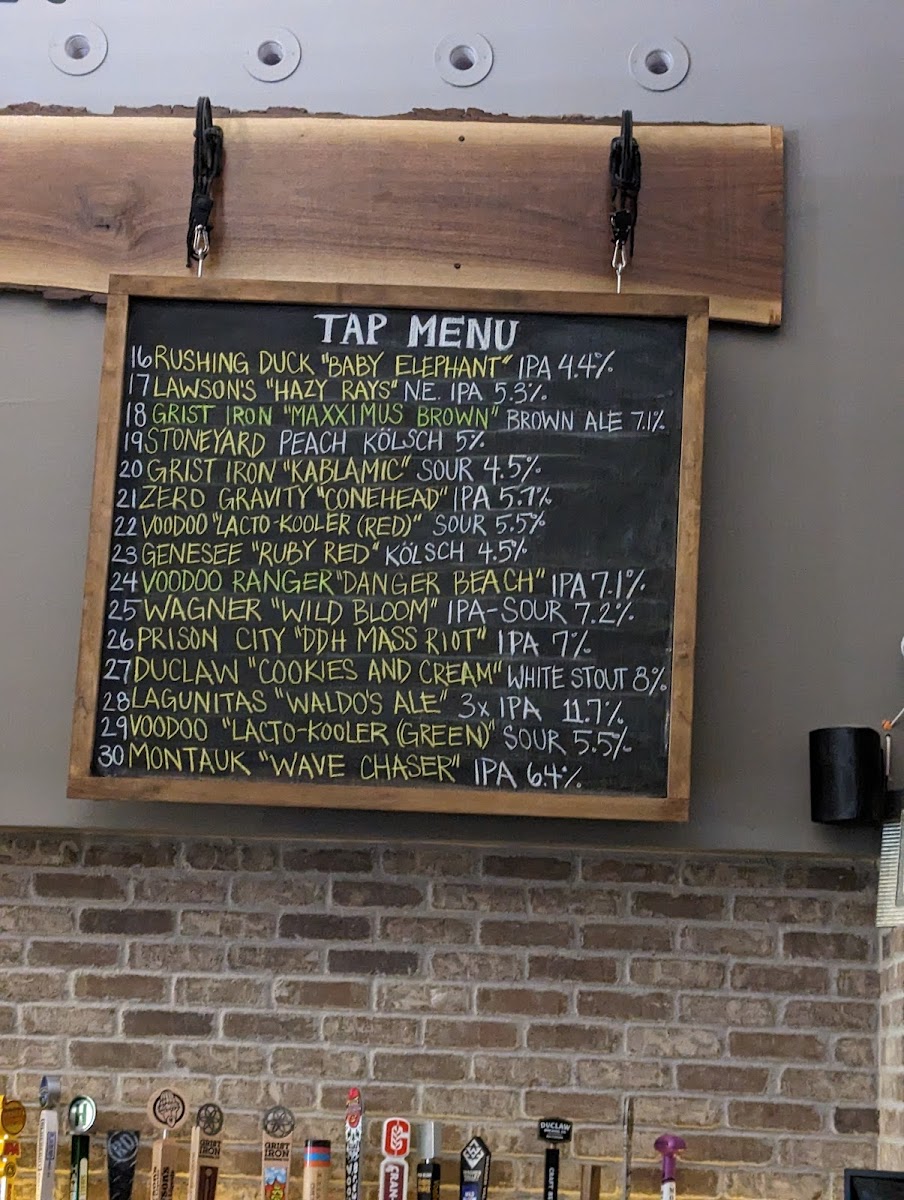 TAP MENU
16 RUSHING DUCK "BABY ELEPHANT" IPA 4.4%
17 LAWSON'S "HAZY RAYS" N.E. IPA 5.3%
18 GRIST IRON "MAXXIMUS BROWN" BROWN ALE 7.1%
19 STONEYARD PEACH KÖLSCH 5%
20 GRIST IRON "KABLAMIC" SOUR 4.5%
21 ZERO GRAVITY "CONEHEAD" IPA 5.7%
22 VOODOO "LACTO-KOOLER (RED)" SOUR 5.5%
23 GENESEE "RUBY RED" KÖLSCH 4.5%
24 VOODOO RANGER "DANGER BEACH" IPA 7.1%
25 WAGNER "WILD BLOOM" IPA-SOUR 7.2%
26 PRISON CITY "DDH MASS RIOT" IPA 7%
27 DUCLAW "COOKIES AND CREAM" WHITE STOUT 8%
28 LAGUNITAS "WALDO'S ALE" 3x IPA 11.7%
29 VOODOO "LACTO-KOOLER (GREEN)" SOUR 5.5%
30 MONTAUK "WAVE CHASER" IPA 6.4%
GRIST IRON
DUCLAW
CRAFT